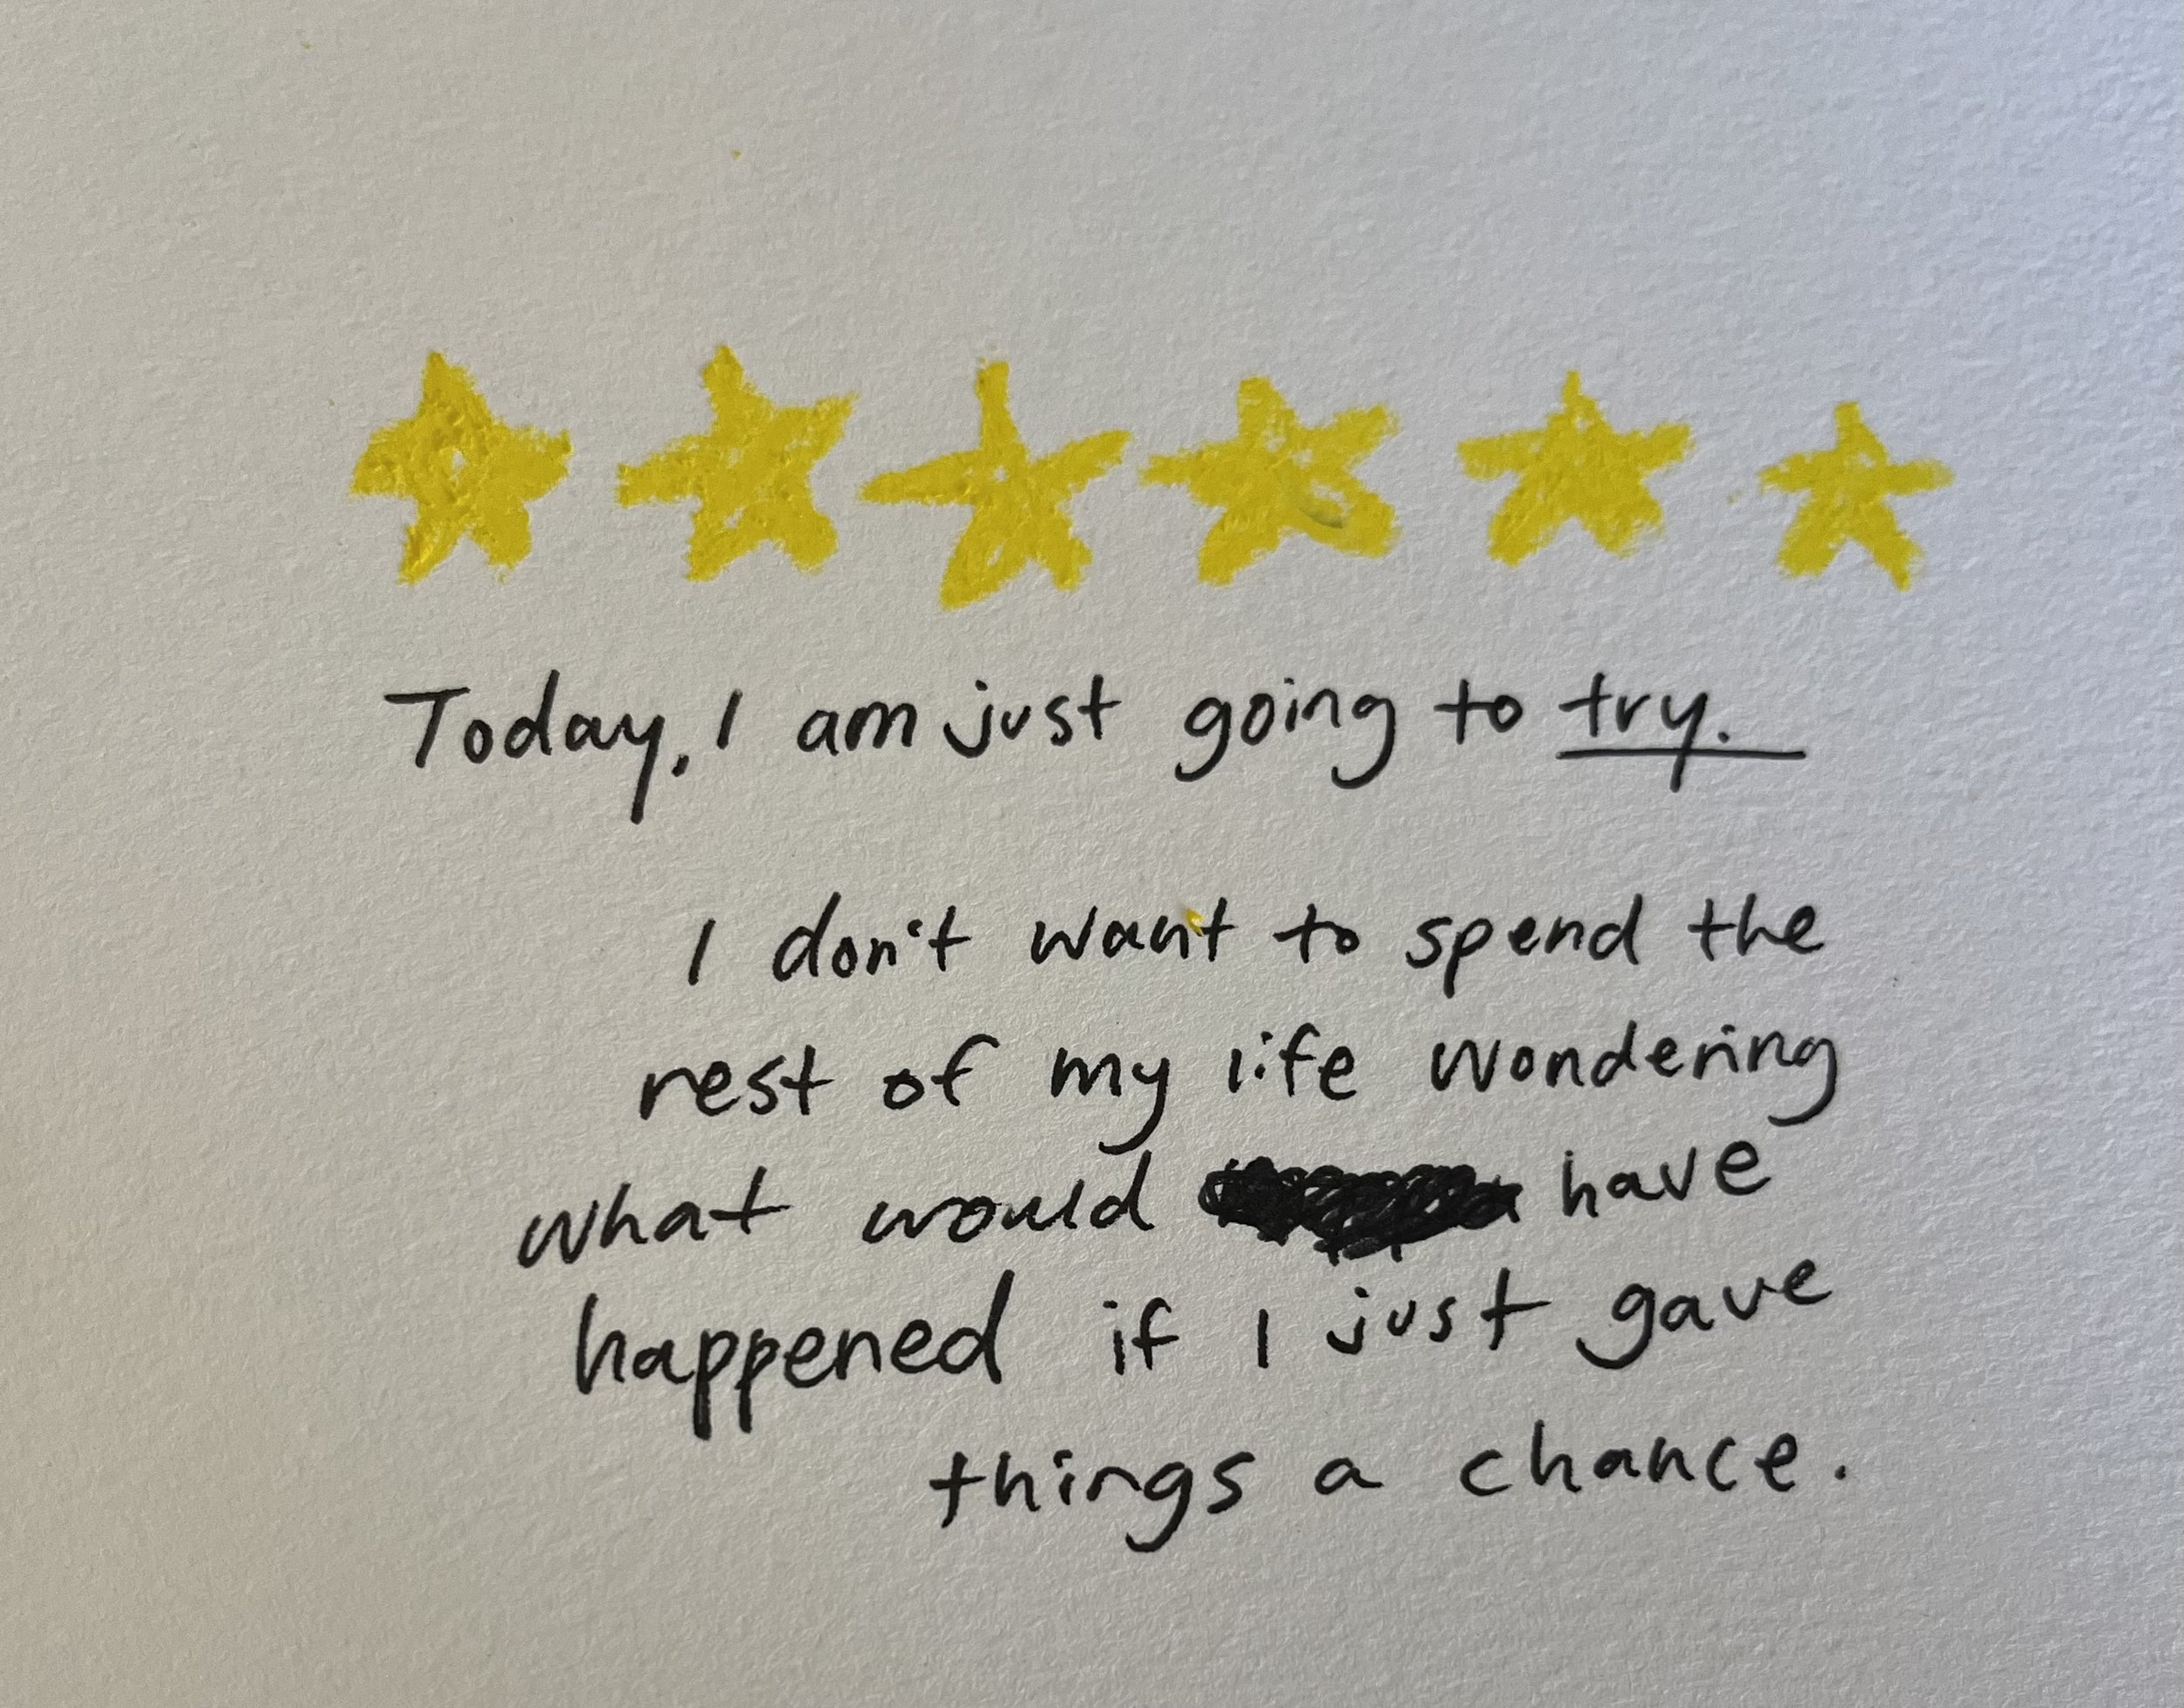 Today, I am just going to try.
I don't want to spend the
rest of my life wondering
what would have
happened if I just gave
things a chance.